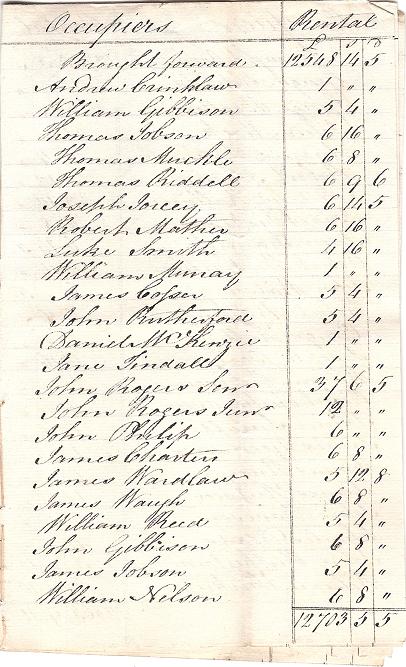 Occupiers Rental
£ s d
Brought forward . 12548 14 5
Andrew Cunklaw 1 " "
William Gibbison 5 4 "
Thomas Jobson 6 16 "
Thomas Muckle 6 8 "
Thomas Riddell 6 9 6
Joseph Joicey 6 14 5
Robert Mather 6 16 "
Luke Smith 4 16 "
William Murray 1 " "
James Cosser 5 4 "
John Rutherford 5 4 "
Daniel McKenzie 1 " "
Jane Tindall 1 " "
John Rogers Senr 37 6 5
John Rogers Junr 12 " "
John Philip 6 " "
James Charters 6 8 "
James Wardlaw 5 12 8
James Waugh 6 8 "
William Reed 5 4 "
John Gibbison 6 8 "
James Jobson 5 4 "
William Nelson 6 8 "
12703 5 5